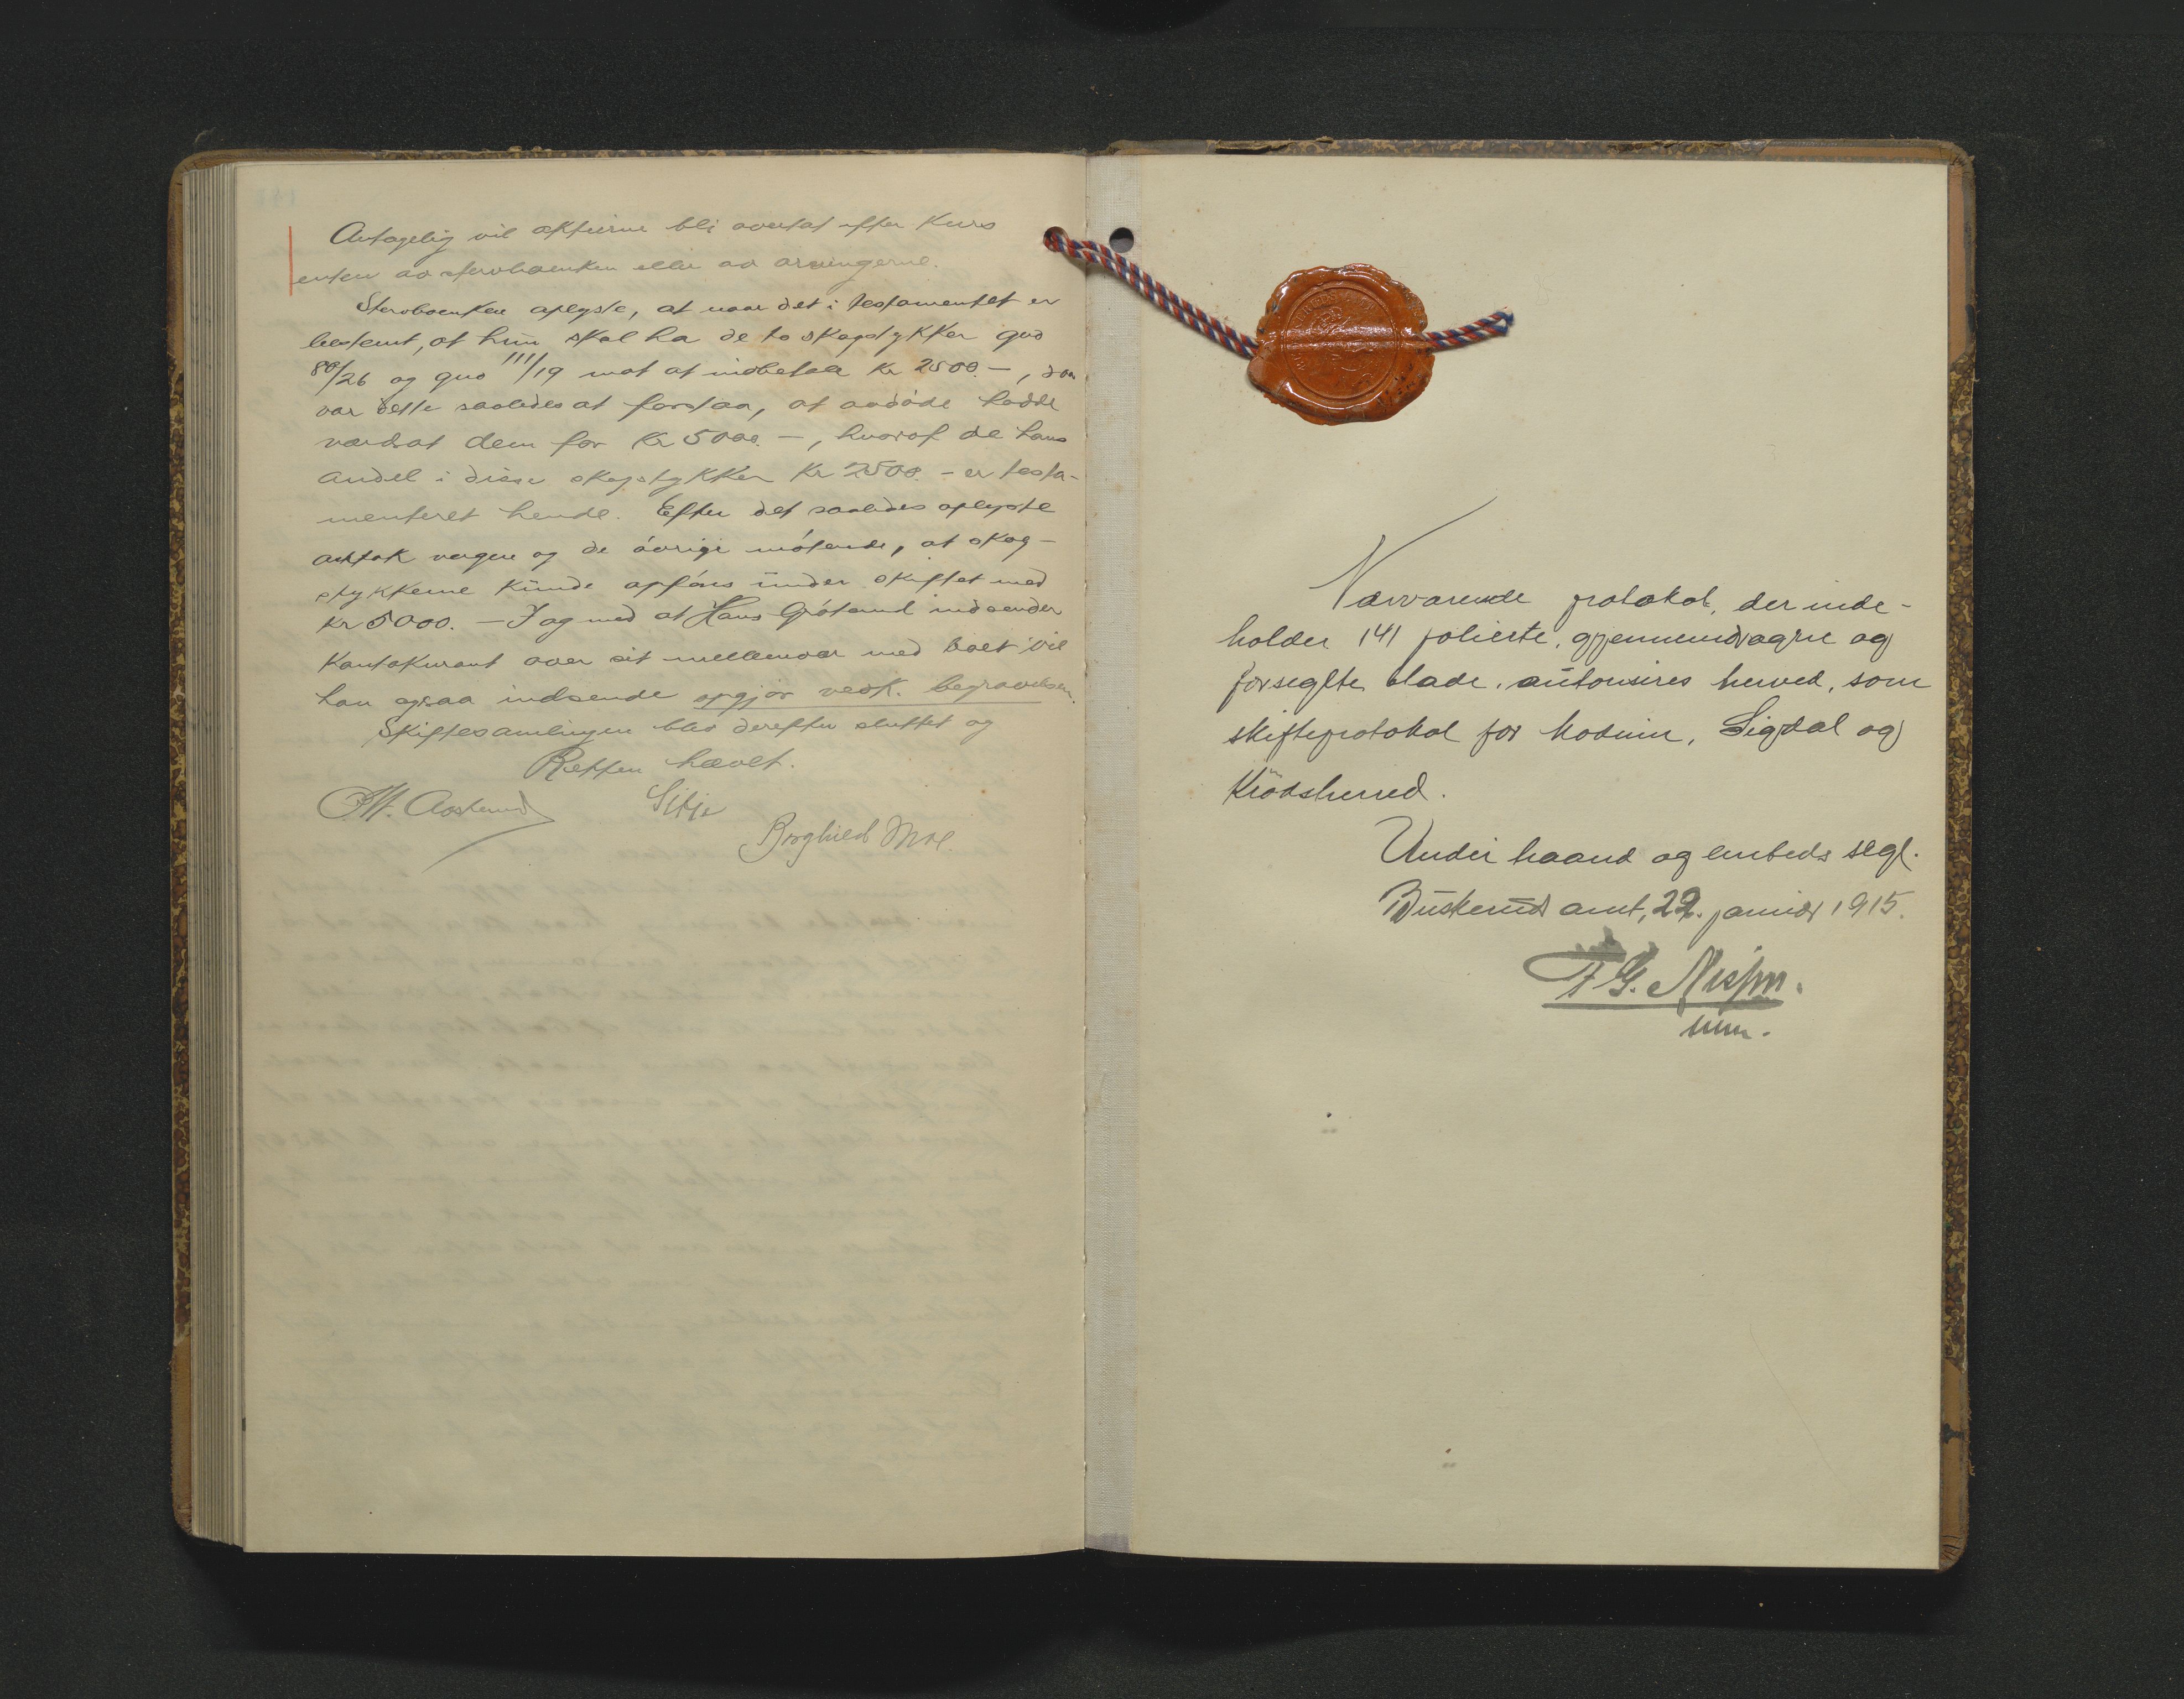 Antagelig vil aktierne bli overtat efter Kurs
enten av stervboenken eller av arvingerne.
Stervboenken oplyste, at naar det i testamentet er
bestemt, at hun skal ha de to skogstykker gno
80/26 og gno 111/19 mot at indbetale Kr 2500.-, saa
var dette saaledes at forstaa, at avdöde hadde
værdsat dem for Kr 5000.-, hvorof de hans
andel i disse skogstykker Kr 2500.- er testa-
menteret hende. Efter det saaledes oplyste
vergen og de övrige mötende, at skog-
stykkerne kunde opföres under skiftet med
Kr 5000.- I og med at Hans Grötand indsender
Kontokurant over sit mellemvær med boet vil
han ogsaa indsende opgjör vedk. begravelsen.
Skiftesamlingen blev derefter sluttet og
Retten hævet.
Aasterud Sibje
Borghild Moe.
Nærværende protokol, der inde-
holder 141 folierte, gjennemdragne og
forseglte blade, autoriseres herved, som
skifteprotokol for Modum, Sigdal og
Krödsherred.
Under haand og embeds segl.
Buskeruds amt, 22. januar 1915.
F G. Nissen.